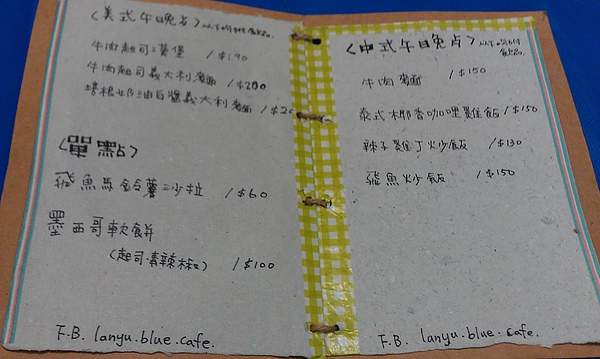 〈美式午晚点〉以下均附飲品.
牛肉起司漢堡 /$190
牛肉起司義大利麵 /$200
培根奶油白醬義大利麵 /$20
〈單點〉
飛魚馬鈴薯沙拉 /$60
墨西哥軟餅
(起司.青辣椒) /$100
F.B. lanyu.blue.cafe.
〈中式午晚点〉以下均附飲品.
牛肉麵 /$150
泰式椰香咖哩雞飯 /$150
辣子雞丁炒飯 /$130
飛魚炒飯 /$150
F.B. lanyu.blue.cafe.